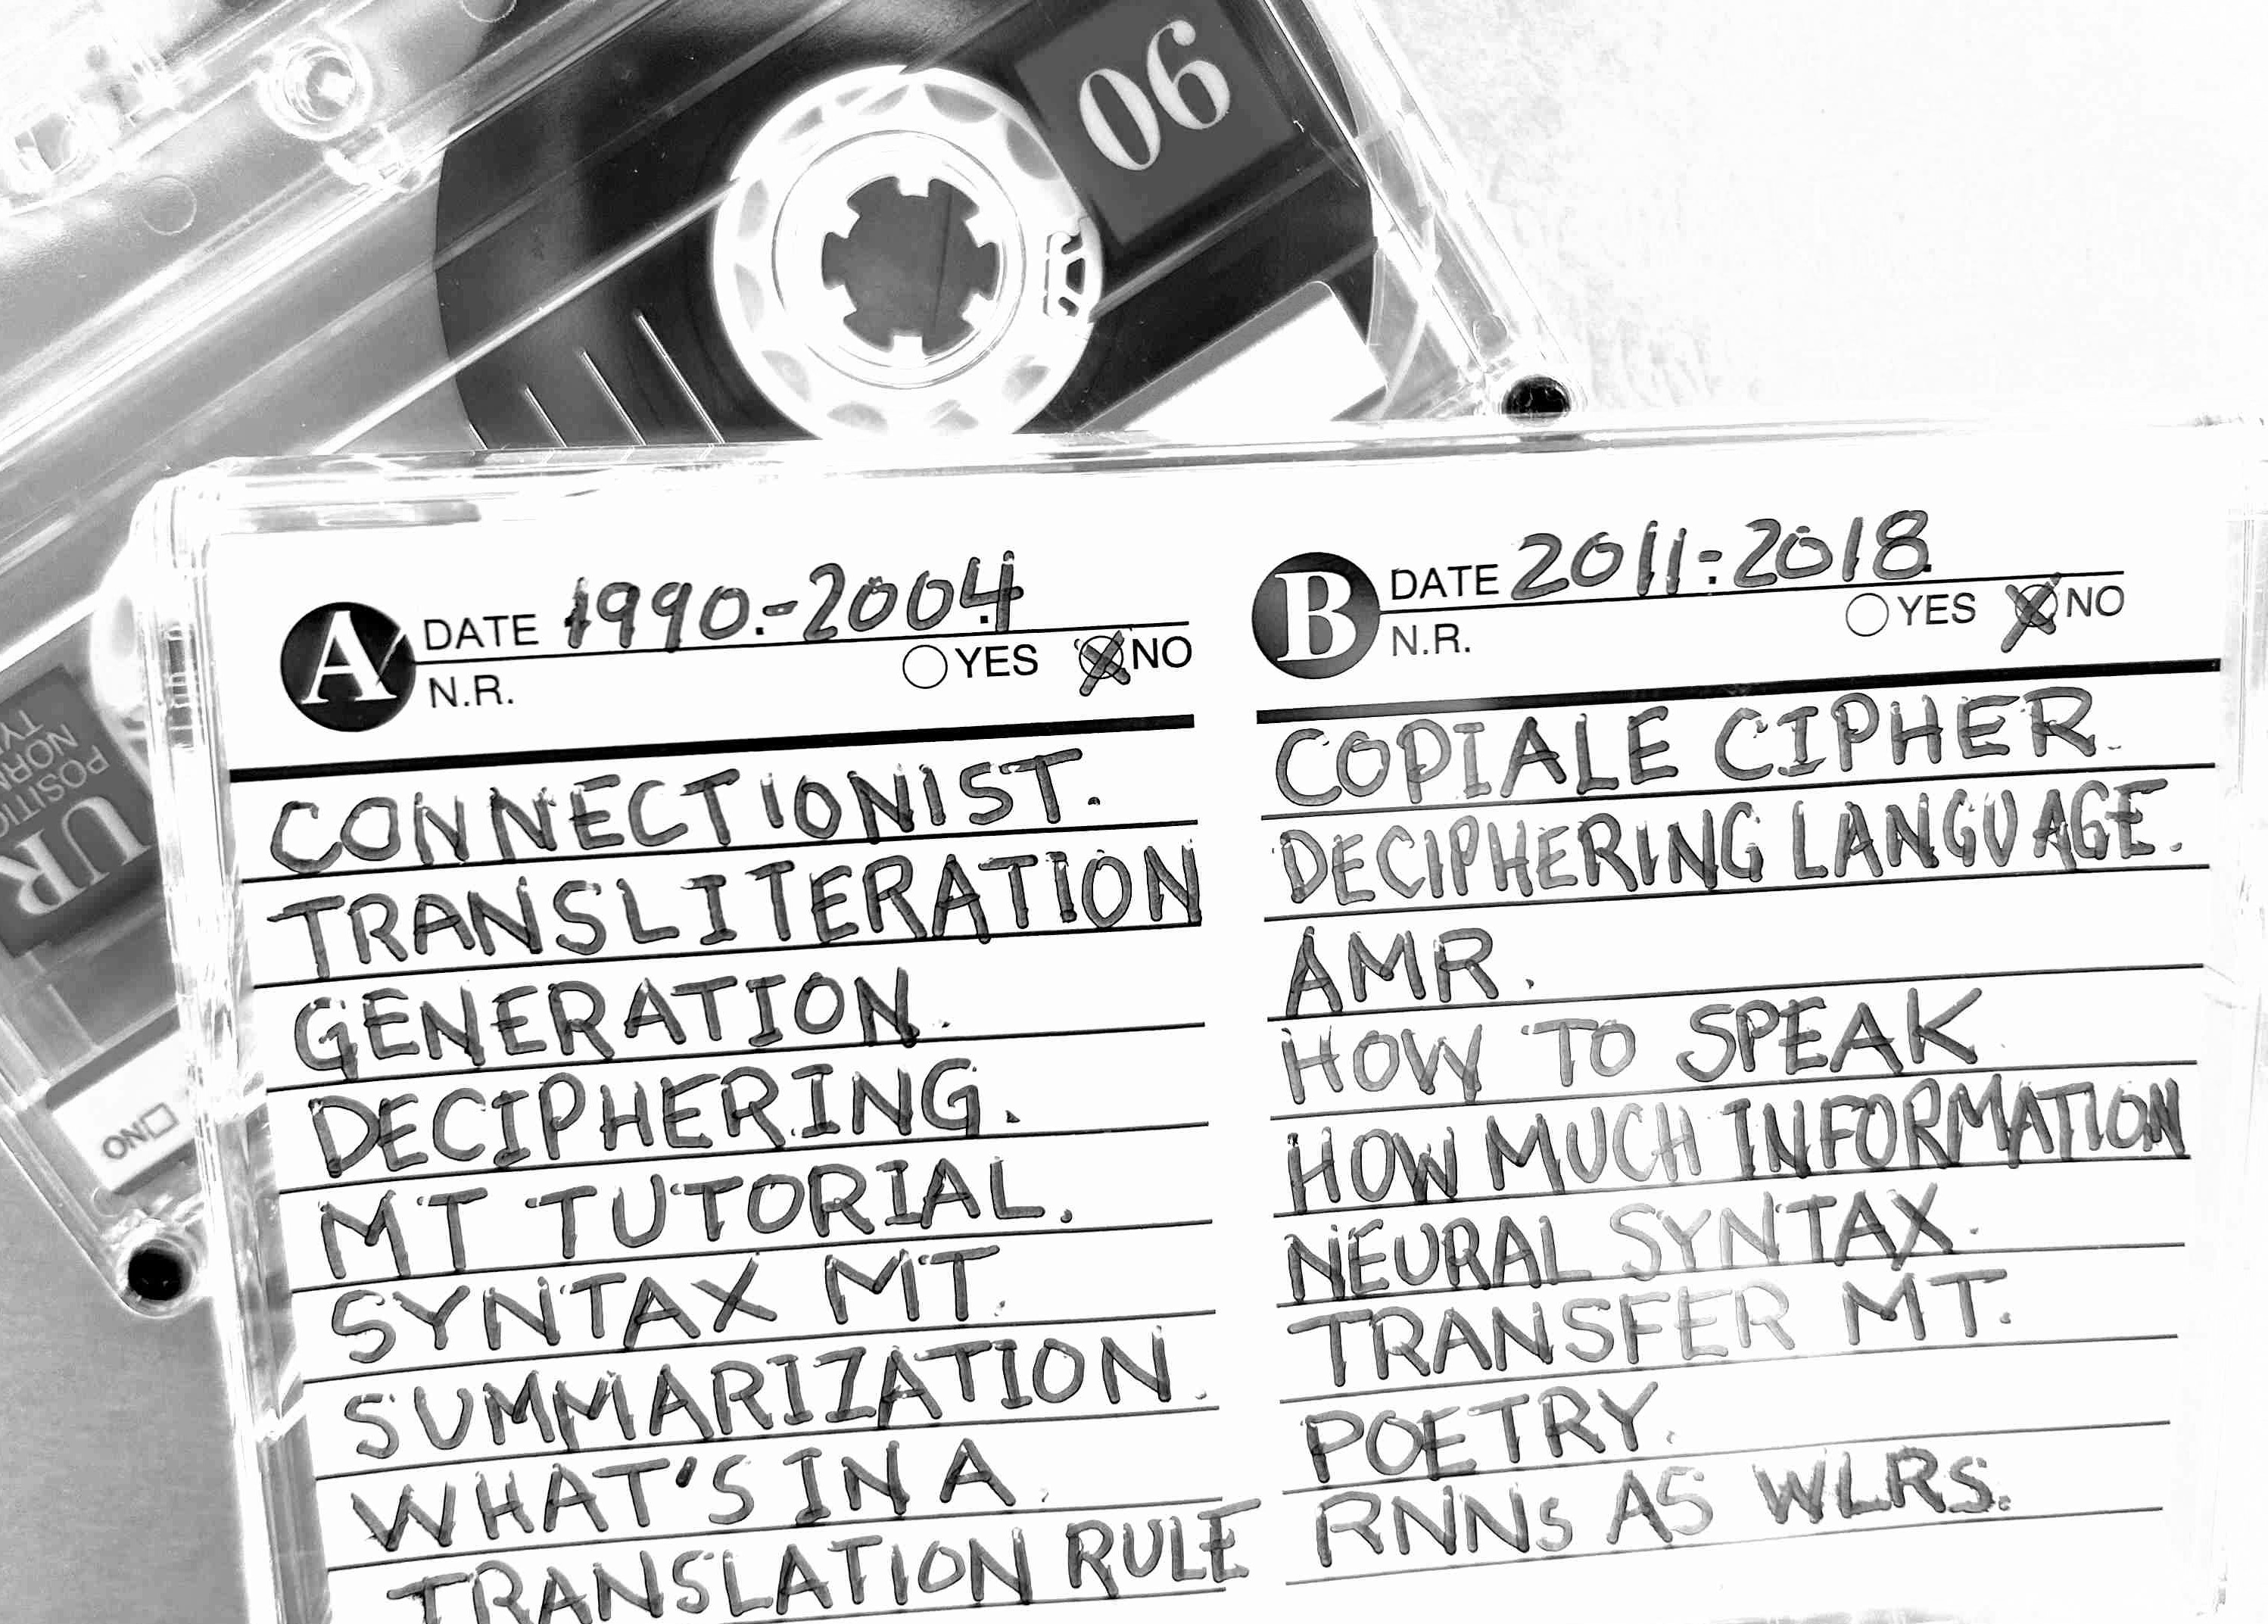 90
UR
POSITIO
NORM
TY
NO
A DATE 1990.-2004
N.R. YES NO
CONNECTIONIST.
TRANSLITERATION
GENERATION.
DECIPHERING.
MT TUTORIAL.
SYNTAX MT.
SUMMARIZATION.
WHAT'S IN A
TRANSLATION RULE
B DATE 2011-2018
N.R. YES NO
COPIALE CIPHER
DECIPHERING LANGUAGE.
AMR.
HOW TO SPEAK
HOW MUCH INFORMATION
NEURAL SYNTAX.
TRANSFER MT.
POETRY.
RNNs AS WLRS.